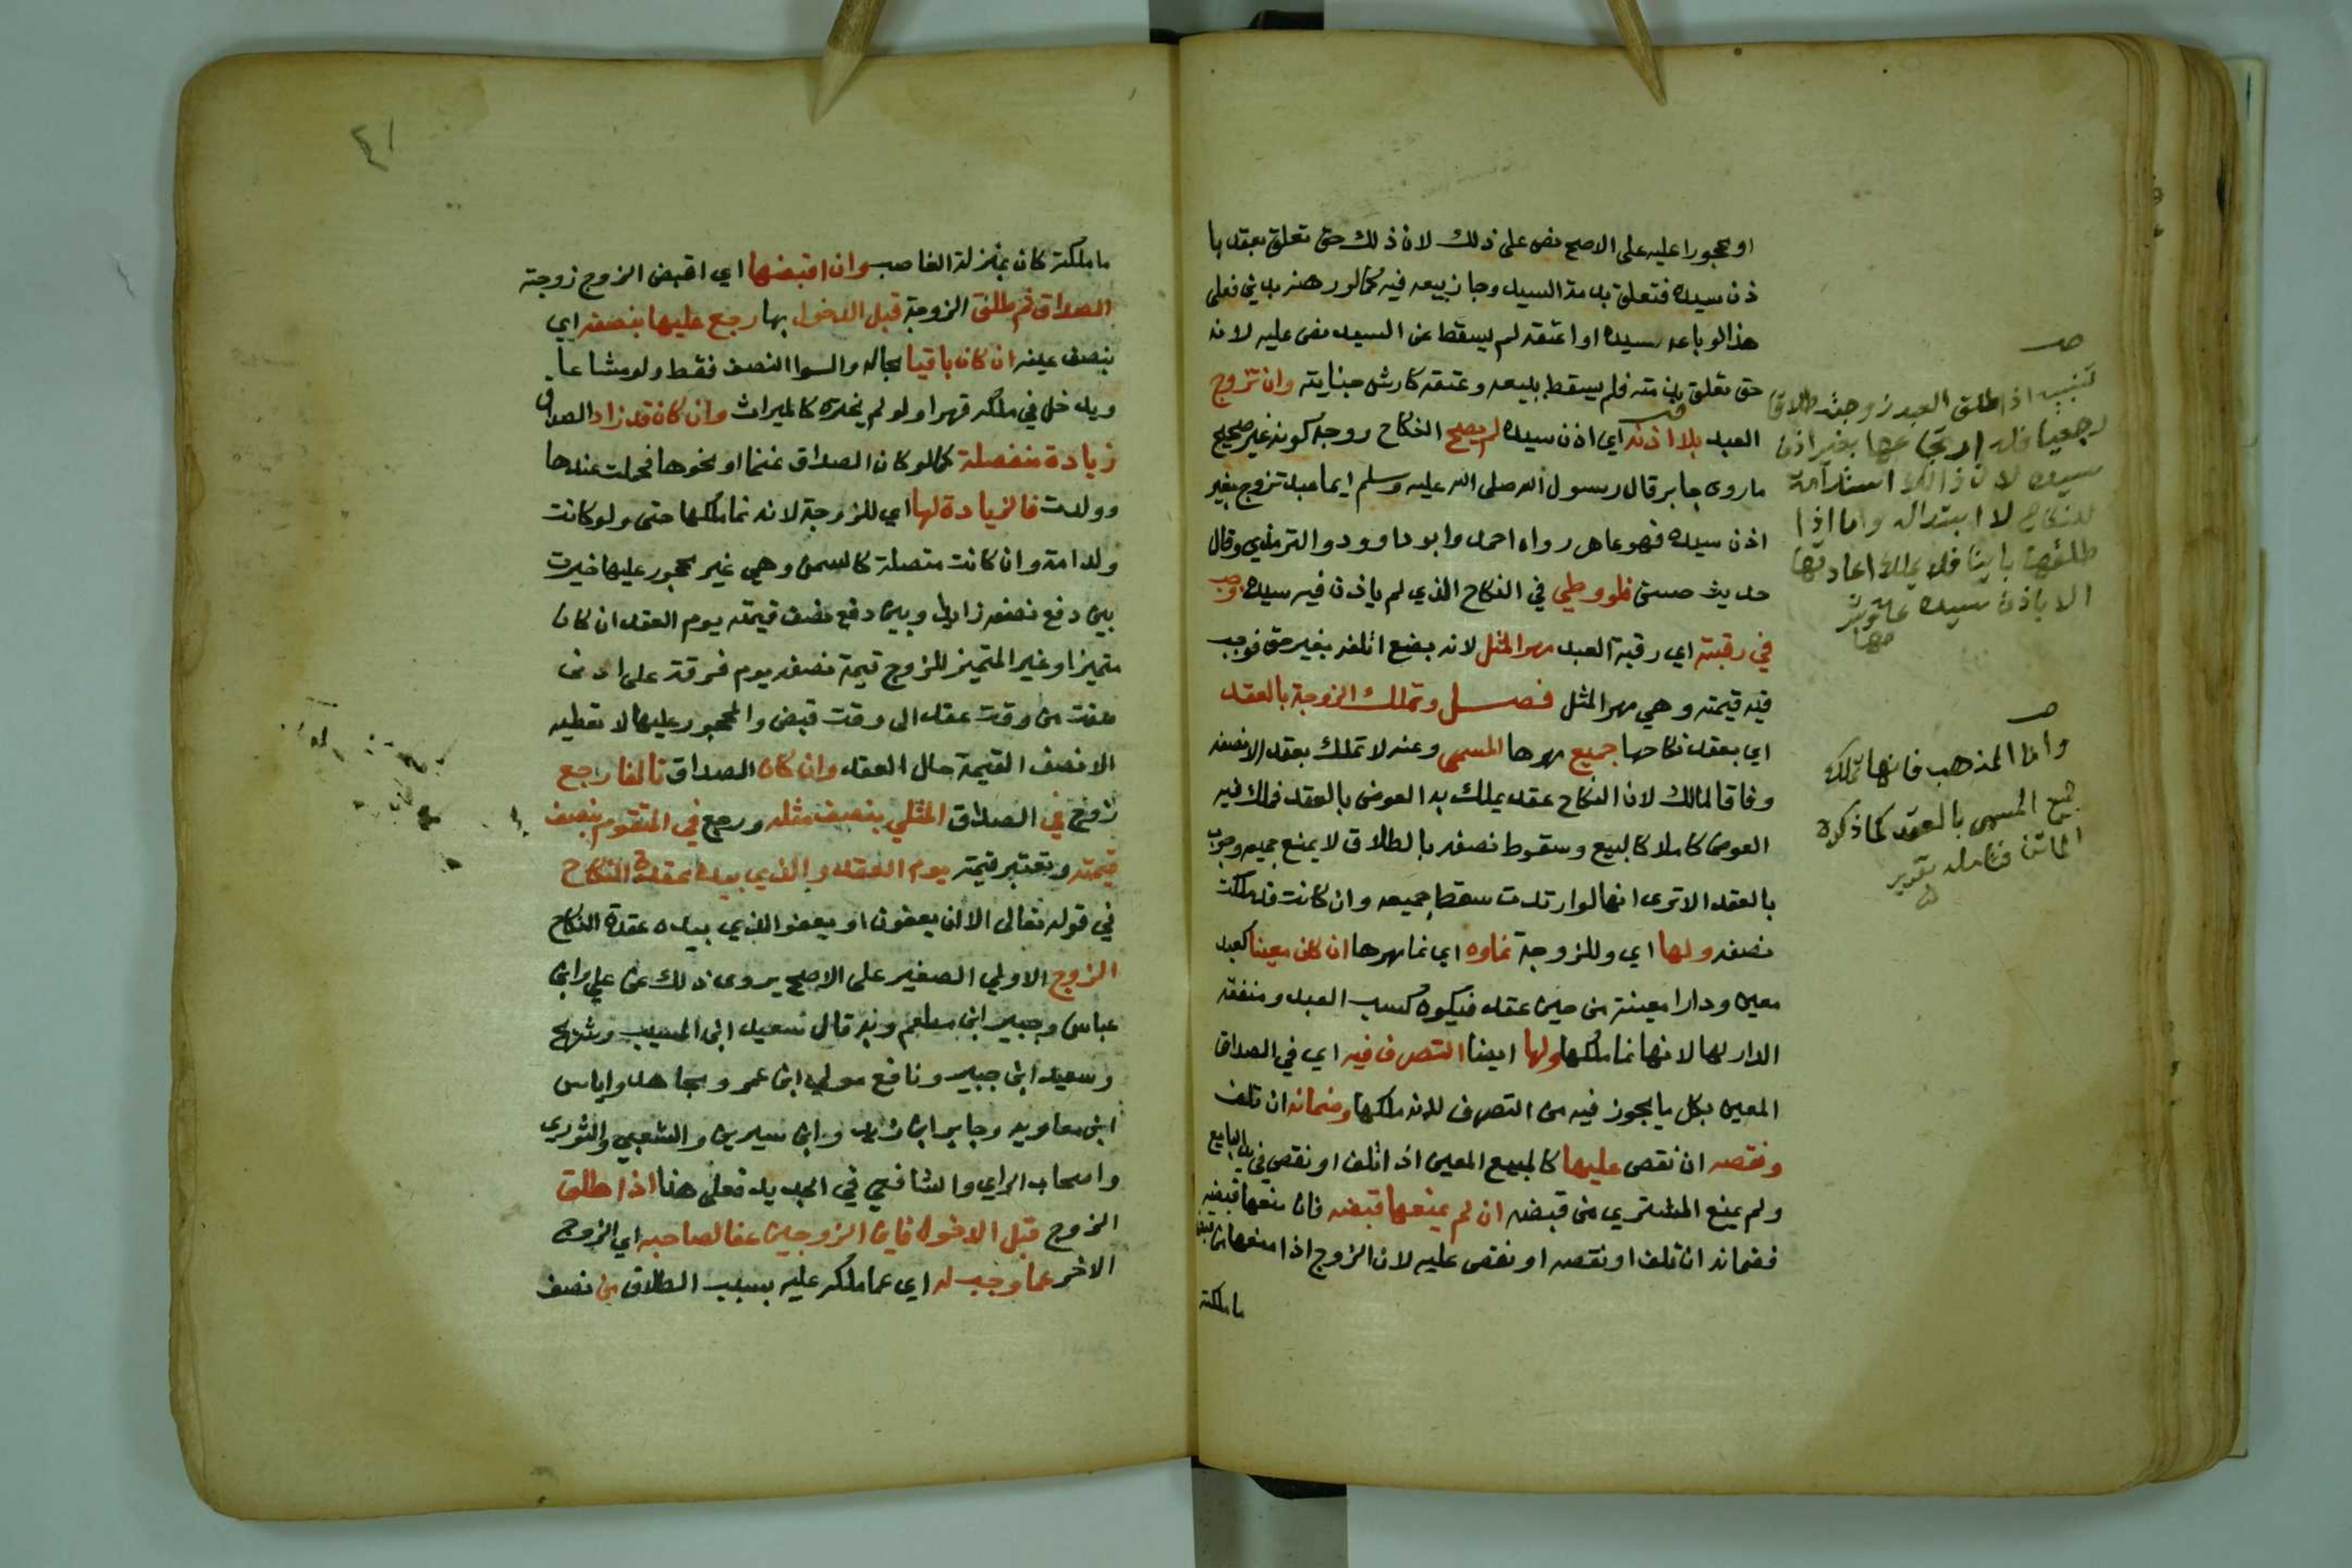 او محجورا عليه على الاصح نص على ذلك لان ذلك حق تعلق بعقد با
ذن سيده فتعلق بذمة السيد وجاز بيعه فيه كما لو رهنه بدين فعلى
هذا لو باعه سيده او اعتقه لم يسقط عن السيد نص عليه لانه
حق تعلق بذمته فلم يسقط ببيعه وعتقه كارش جنايته وان تزوج
العبد بلا اذنه اي اذن سيده لم يصح النكاح روجه كونه غير صحيح
ما روى جابر قال رسول الله صلى الله عليه وسلم ايما عبد تزوج بغير
اذن سيده فهو عاهر رواه احمد وابو داوود والترمذي وقال
حديث حسن فلو وطي في النكاح الذي لم ياذن فيه سيده وجب
في رقبته اي رقبة العبد مهر المثل لانه بضع اتلفه بغير حق فوجب
فيه قيمته وهي مهر المثل فصل وتملك الزوجة بالعقد
اي بعقد نكاحها جميع مهرها المسمى وعنه لا تملك بعقد الا نصفه
وفاقا لمالك لان النكاح عقد يملك به العوض بالعقد فملك فيه
العوض كاملا كالبيع وسقوط نصفه بالطلاق لا يمنع جميعه وجوب
بالعقد الا ترى انها لو ارتدت سقط جميعه وان كانت قد ملكت
نصفه ولها اي وللزوجة نماوه اي نما مهرها ان كان معينا كعبد
معين ودارا معينة من حين عقد فيكون كسب العبد ومنفعة
الدار لها لانها نما ملكها ولها ايضا التصرف فيه اي في الصداق
المعين بكل ما يجوز فيه من التصرف لانه ملكها وضمانه ان تلف
ونقصه ان نقص عليها كالمبيع المعين اذ اتلف او نقص في يد البايع
ولم يمنع المشتري من قبضه ان لم يمنعها قبضه فان منعها قبضه
فضمانه ان تلف او نقصه او نقص عليه لان الزوج اذا منعها من قبض
ما ملكته
تنبيه اذا طلق العبد زوجته طلاقا
رجعيا فله ارتجاعها بغير اذن
سيده لان ذالك استدامة
للنكاح لا ابتدا له واما اذا
طلقها باينا فلا يملك اعادتها
الا باذن سيده
واما المذهب فانها تملك
جميع المسمى بالعقد كما ذكره
الماتن فتامله تقرير
٤١
ما ملكته كان بمنزلة الغاصب وان اقبضها اي اقبض الزوج زوجته
الصداق ثم طلق الزوجة قبل الدخول بها رجع عليها بنصفه اي
بنصف عينه ان كان باقيا بحاله والسوا النصف فقط ولو مشاعا
ويدخل في ملكه قهرا ولو لم يختره كالميراث وان كان قد زاد الصداق
زيادة منفصلة كما لو كان الصداق غنما او نحوها فحملت عندها
وولدت فالزيادة لها اي للزوجة لانه نما ملكها حتى ولو كانت
ولد امة وان كانت متصلة كالسمن وهي غير محجور عليها خيرت
بين دفع نصفه زايدا وبين دفع نصف قيمته يوم العقد ان كان
متميزا وغير المتميز للزوج قيمة نصفه يوم فرقة على ادنى
صفت من وقت عقد الى وقت قبض والمحجور عليها لا تعطيه
الا نصف القيمة حال العقد وان كان الصداق تالفا رجع
زوج في الصداق المثلي بنصف مثله ورجع في المتقوم بنصف
قيمته وتعتبر قيمته يوم العقد والذي بيده عقدة النكاح
في قوله تعالى الا ان يعفون او يعفو الذي بيده عقدة النكاح
الزوج الا ولي الصغير على الاصح يروى ذلك عن علي وابن
عباس وجبير ابن مطعم وبه قال سعيد ابن المسيب وشريح
وسعيد ابن جبير ونافع مولى ابن عمر ومجاهد واياس
ابن معاويه وجابر ابن زيد وابن سيرين والشعبي والثوري
واصحاب الراي والشافعي في الجديد فعلى هذا اذا طلق
الزوج قبل الدخول فاي الزوجين عفا لصاحبه اي الزوج
الاخر عما وجب له اي عما ملكه عليه بسبب الطلاق من نصف